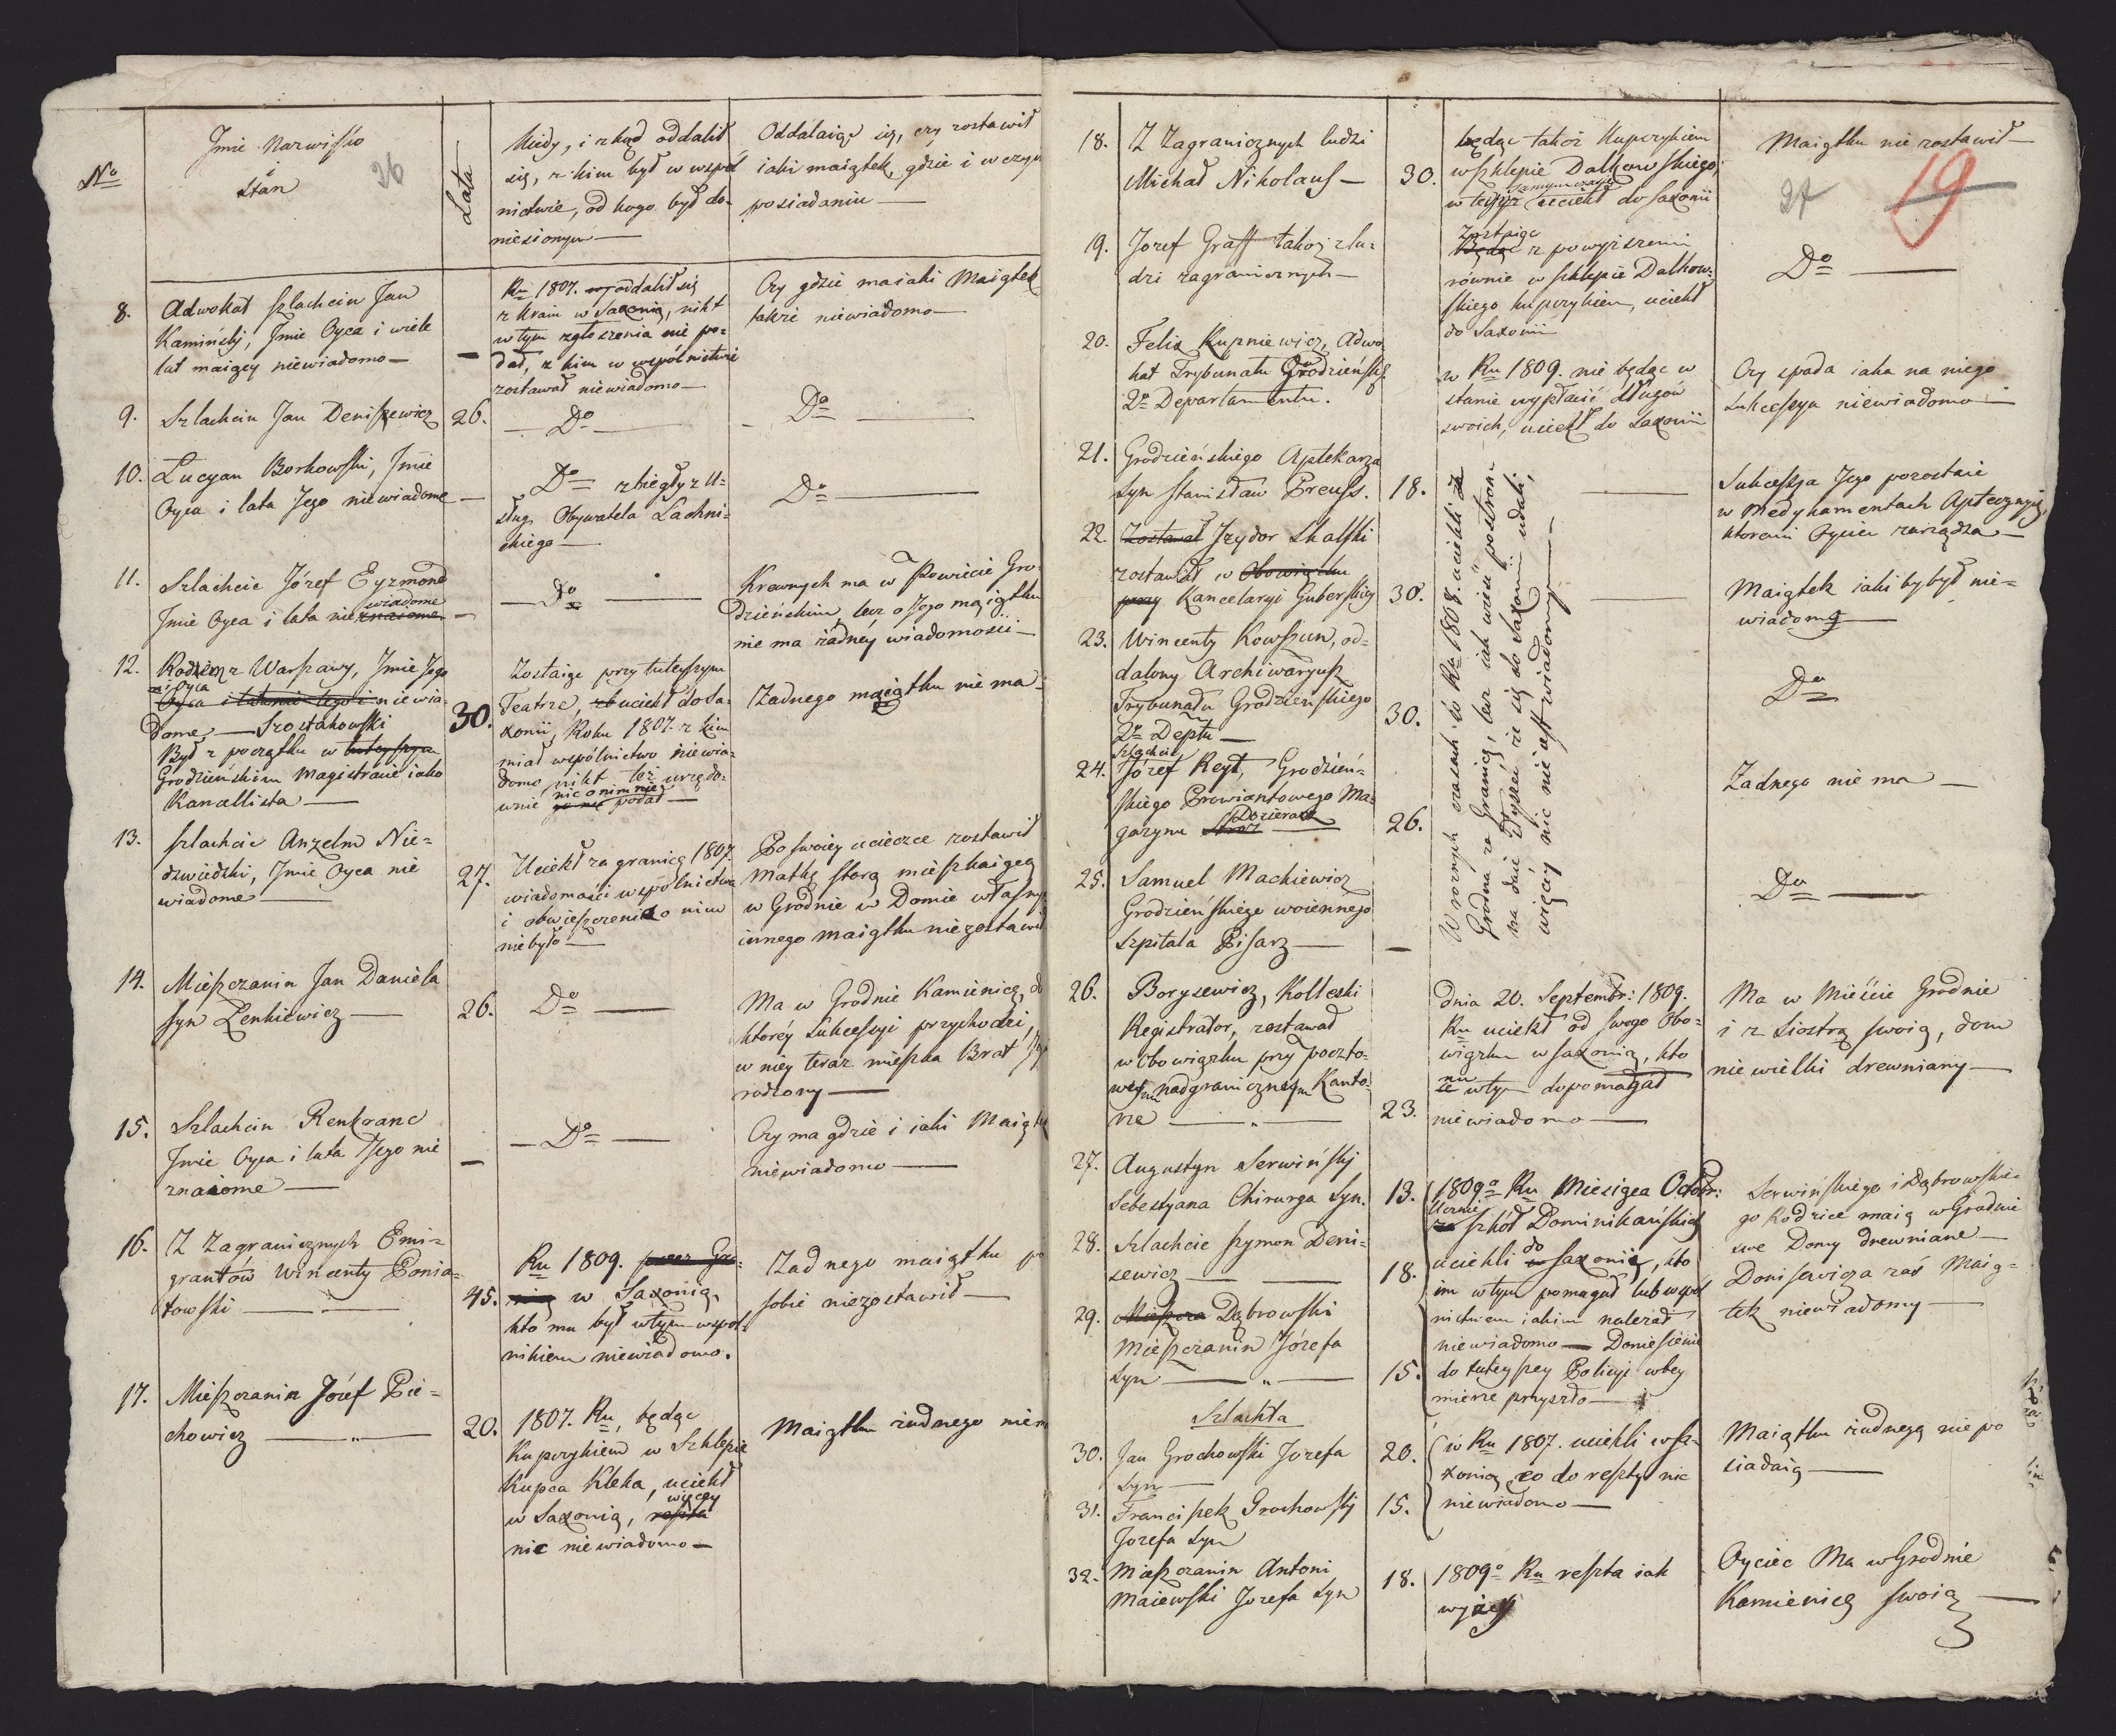 No
Jmie Narwisko
i
Stan
26
Lata
Kiedy, i zkąd oddalił
się, z kim był w wspól
nictwie, od kogo był do-
niesionym —
Oddalaiąc się, czy zostawił
iaki maiątek, gdzie i w czym
posiadaniu —
8.
Adwokat szlachcic Jan
Kamiński, Jmie Oyca i wiele
lat maiący niewiadomo —
—
Ru 1807. oddalił się
z kraiu w Saxonią, nikt
w tym zgłoszenia nie po-
dał, z kim w wspólnictwie
zostawał niewiadomo —
Czy gdzie ma iaki Maiątek
także niewiadomo —
9.
Szlachcic Jan Deniszewicz
26.
— Do —
— Do —
10.
Lucyan Borkowski, Jmie
Oyca i lata Jego niewiadome —
Do zbiegły z u-
sług Obywatela Lachni-
ckiego —
Do —
11.
Szlachcic Józef Eyzmond
Jmie Oyca i lata nie wiadome
znaiome —
— Do —
Krewnych ma w Powiecie Gro-
dzieńskim, lecz o Jego maiątku
nie ma żadnéy wiadomości —
12.
Rodem z Warszawy, Jmie Jego
ni Oyca
Oyca niewia-
dome — Szostakowski
Był z początku w tuteyszym
Grodzieńskim Magistracie iako
Kancellista —
30.
Zostaiąc przy tuteyszym
Teatrze, uciekł do Sa-
xonii, Roku 1807. z kim
miał wspólnictwo niewia-
domo, nikt też urzędo-
wnie nic o nim nie
podał —
Żadnego maiątku nie ma —
13.
Szlachcic Anzelm Nie-
dzwiedzki, Jmie Oyca nie
wiadome —
27.
Uciekł za granicę 1807.
wiadomości wspólnictwa
i obwieszczenia o nim
nie było —
Po swoiey ucieczce zostawił
Matkę starą mieszkaiącą
w Grodnie w Domie własny
innego maiątku nie zostawił
14.
Mieszczanin Jan Daniela
syn Zenkiewicz —
26.
Do —
Ma w Grodnie Kamienicę, do
któréy Sukcessyi przychodzi,
w niéy teraz mieszka Brat
rodzony —
15.
Szlachcic Renkranc
Jmie Oyca i lata Jego nie
znaiome —
—
— Do —
Czy ma gdzie i iaki Maiątek
niewiadomo —
16.
Z Zagranicznych Emi-
grantów Wincenty Ponia-
towski —
45.
Ru 1809. przez Gra-
nicę w Saxonią,
kto mu był w tym wspól-
nikiem niewiadomo.
Żadnego maiątku po
sobie niezostawił —
17.
Mieszczanin Józef Pie-
chowicz — „ —
20.
1807. Ru, będąc
Kupczykiem w Sklepie
Kupca Kleka, uciekł
więcey
w Saxonią, reszta
nic niewiadomo —
Maiątku żadnego niem
18.
Z Zagranicznych ludzi
Michał Nikolaus —
30.
będąc takoż Kupczykiem
w sklepie Dalkowskiego,
w tymże samym czasie uciekł do Saxonii
Maiątku nie zostawił —
27
19
19.
Jozef Graff takoż z lu-
dzi zagranicznych —
Zostaiąc
Będąc z powyższemi
równie w sklepie Dalkow-
skiego kupczykiem, uciekł
do Saxonii
Do —
20.
Felix Kupniewicz, Adwo-
kat Trybunału Grodzieńskg
2o Departamentu.
w Ru 1809. nie będąc w
stanie wypłacić długów
swoich, uciekł do Saxonii
Czy spada iaka na niego
sukcessya niewiadomo —
21.
Grodzieńskiego Aptekarza
syn Stanisław Preuss.
18.
—
Sukcessya Jego pozostaie
w Medykamentach Aptecznych,
któremi Oyciec zarządza —
22.
Zostawał Jzydor Skalski
zostawał w Obowiązku
przy Kancelaryi Guberskiey
30.
—
Maiątek iaki by był nie-
wiadomy —
23.
Wincenty Kowszun, od-
dalony Archiwaryusz
Trybunału Grodzieńskiego
2o Deptu —
30.
Do
24.
Szlachcic
Józef Reyt, Grodzień-
skiego Prowiantowego Ma-
gazynu Dozierca —
26.
Żadnego nie ma —
25.
Samuel Mackiewicz
Grodzieńskiego woiennego
Szpitala Pisarz —
—
Do —
W roznych czasach w Ru 1808. uciekli z
Grodna za Granicę, lecz iak wieść postron-
na daie słyszéć że się do Saxonii udali,
więcéy nic nie iest wiadomym —
26.
Borysewicz, Kolleski
Registrator, zostawał
w Obowiązku przy poczto-
wym nadgranicznym Kanto-
rze — „ —
23.
dnia 20. Septembr: 1809.
Ru uciekł od swego Obo-
wiązku w Saxonią, kto
mu
w tym dopomagał
niewiadomo —
Ma w Mieście Grodnie
i z Siostrą swoią, dom
niewielki drewniany —
27.
Augustyn Serwiński
Sebestyana Chirurga Syn.
13.
1809o Ru Miesiąca Octobr:
Ucznie
szkół Dominikańskich
uciekli do Saxonii, kto
im w tym pomagał lub wspól
nictwem iakim należał
niewiadomo — Doniesienie
do tuteyszey Policyi w tey
mierze przyszło —
Serwińskiego i Dąbrowskie-
go Rodzice maią w Grodnie
swe Domy drewniane —
Deniserwicza zaś Maią-
tek niewiadomy —
28.
Szlachcic Szymon Deni-
sewicz — —
18.
29.
Mieszcza Dąbrowski
Mieszczanin Józefa
Syn — „ —
15.
Szlachta
30.
Jan Grochowski Jozefa
Syn —
20.
w Ru 1807. uciekli w Sa-
xonią, co do reszty nic
niewiadomo —
Maiątku żadnego nie po
siadaią —
31.
Franciszek Grochowski
Jozefa Syn
15.
32.
Mieszczanin Antoni
Maiewski Jozefa Syn
18.
1809o Ru reszta iak
wyżéy
Oyciec Ma w Grodnie
Kamienicę swoią —